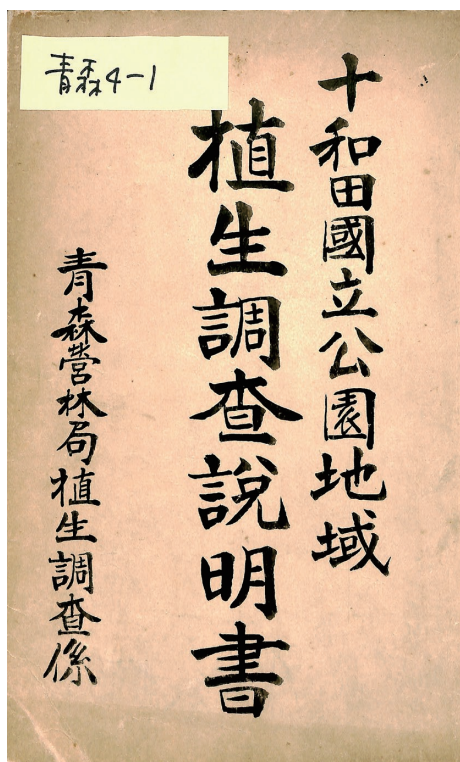 青森4-1
十和田國立公園地域
植生調査説明書
青森營林局植生調査係